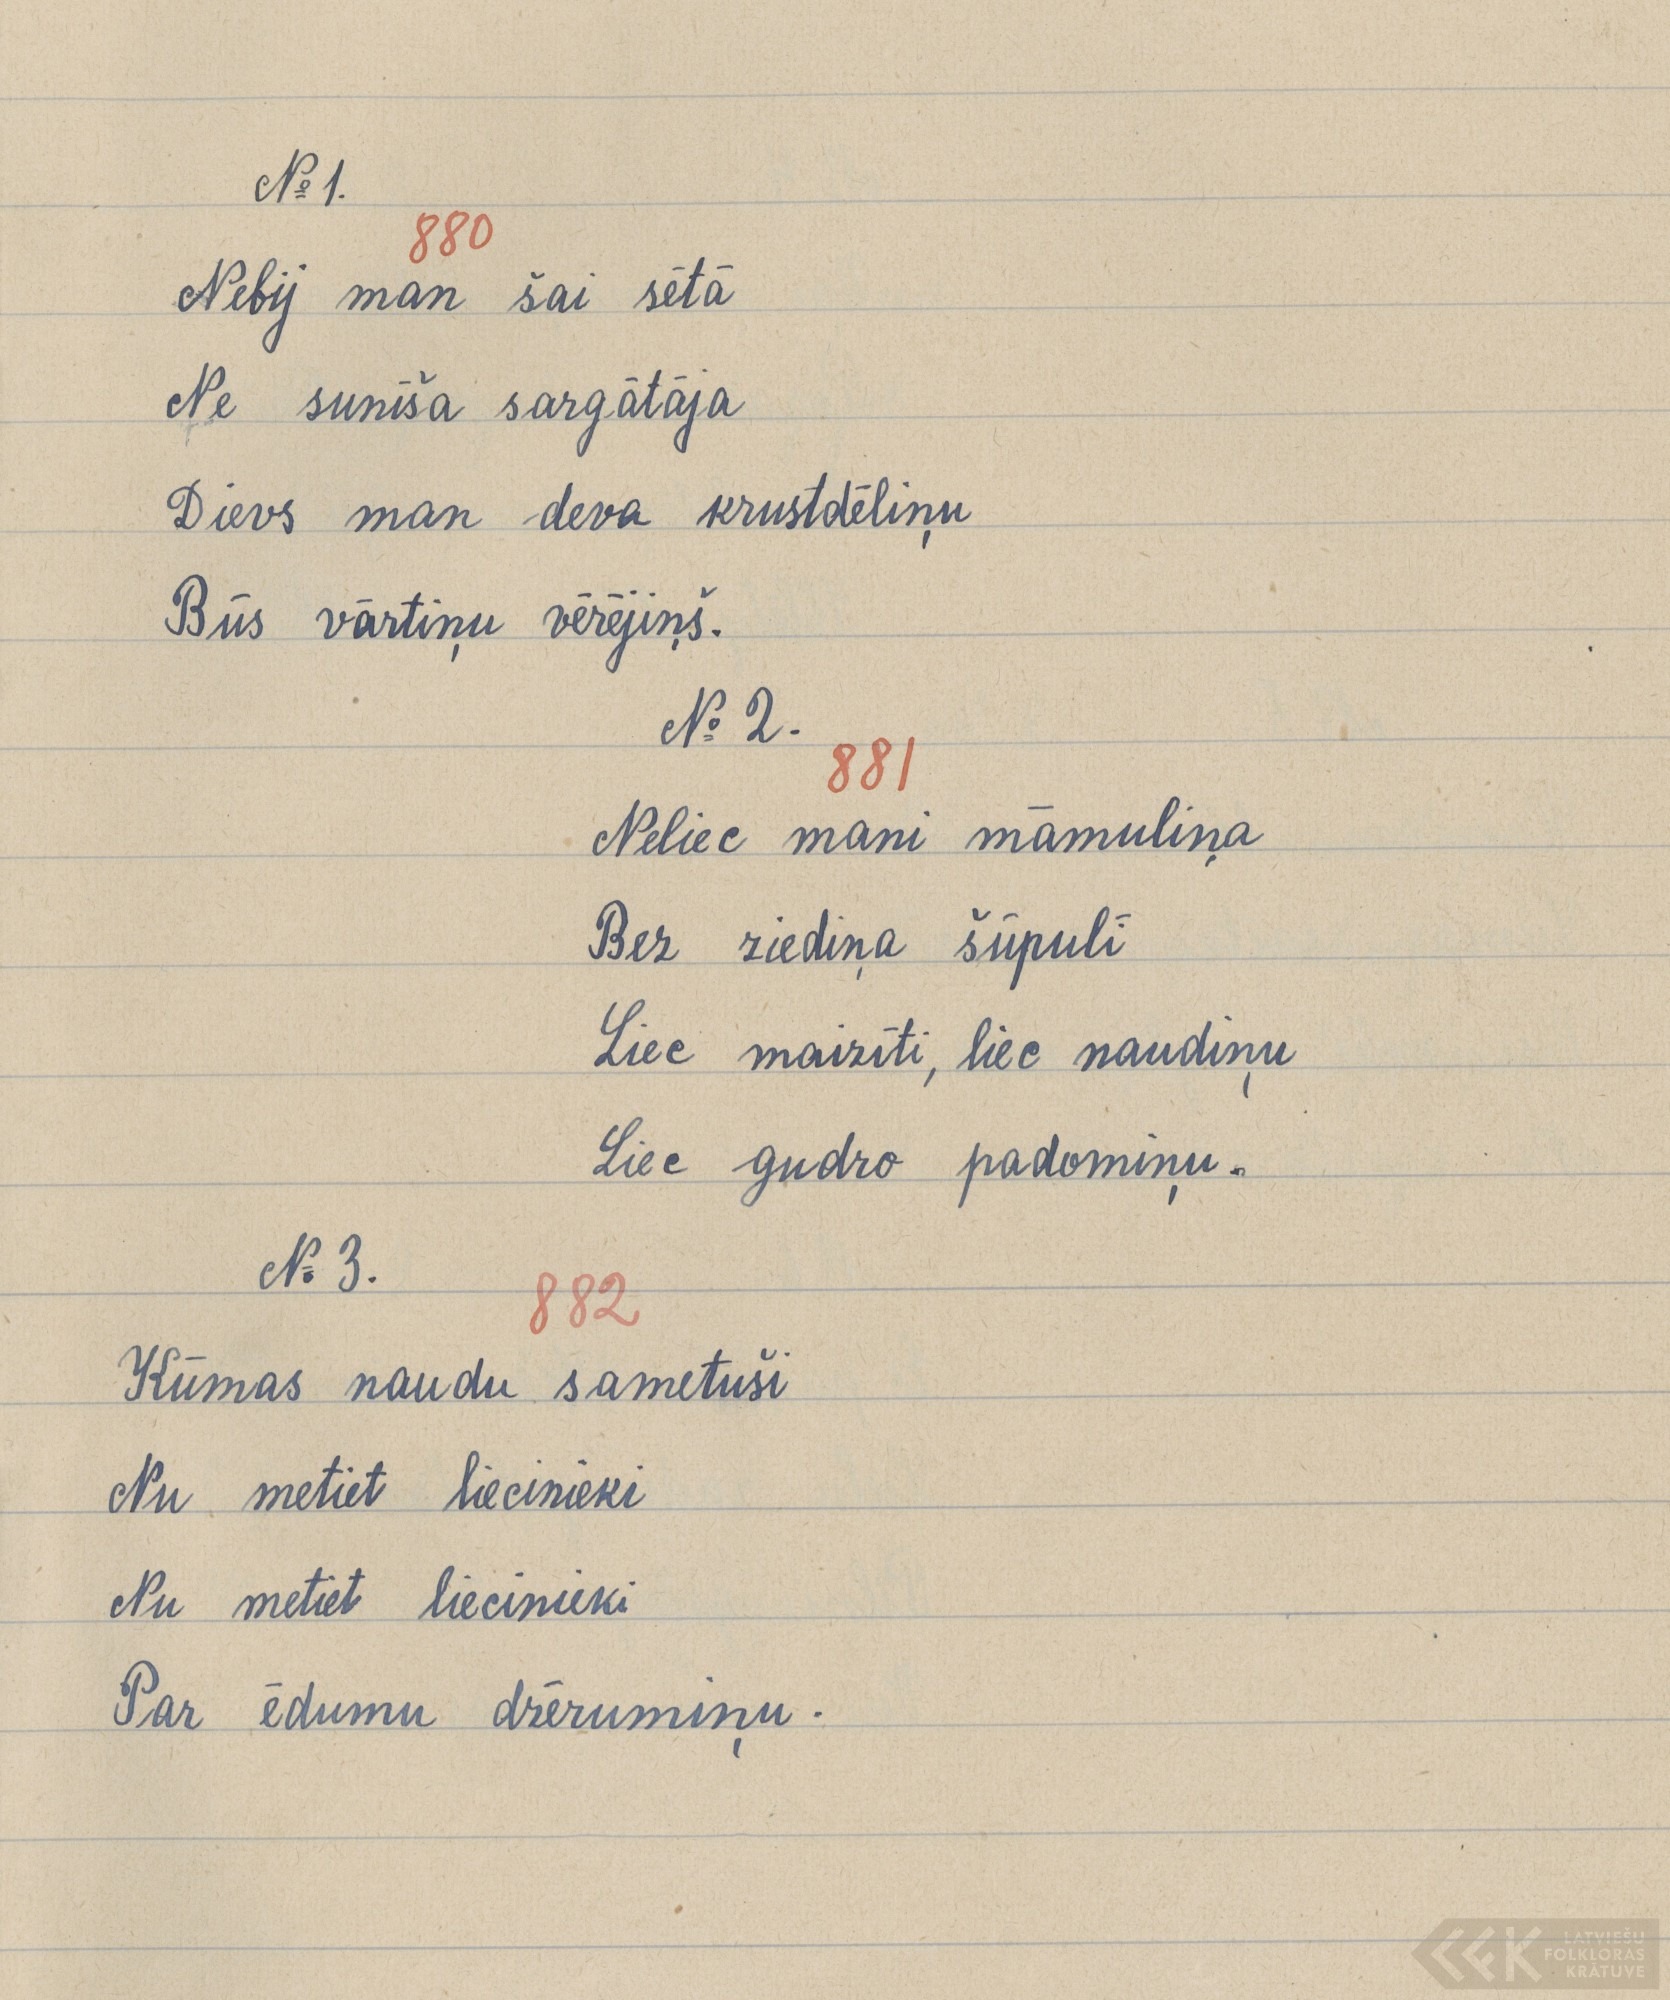 № 1.
880
Nebij man šai sētā
Ne sunīša sargātāja
Dievs man deva krustdēliņu
Būs vārtiņu vērējiņš.
№ 2.
881
Neliec mani māmuliņa
Bez ziediņa šūpulī
Liec maizīti, liec naudiņu
Liec gudro padomiņu.
№ 3.
882
Kūmas naudu sametuši
Nu metiet liecinieki
Nu metiet liecinieki
Par ēdumu dzērumiņu.
LATVIEŠU
FOLKLORAS
KRĀTUVE